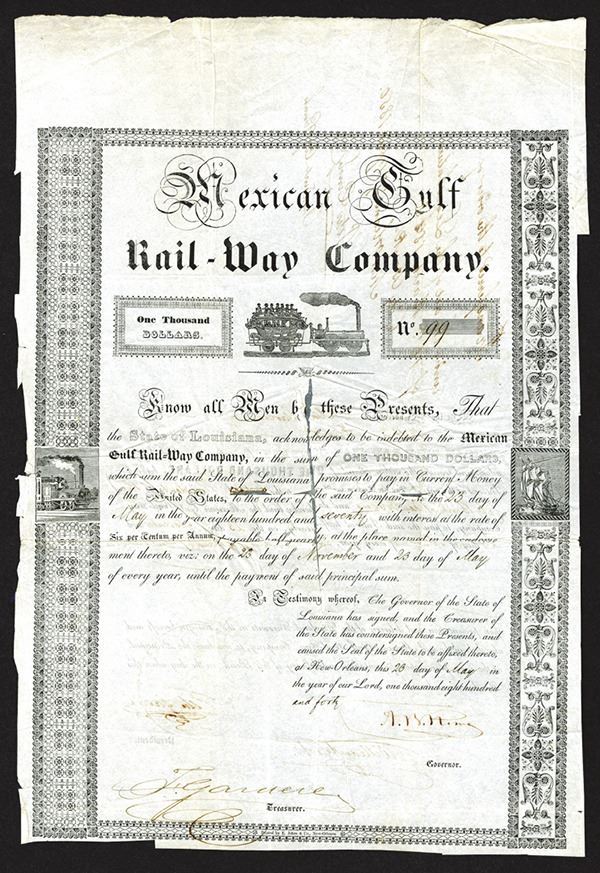 Mexican Gulf
Rail-Way Company.
One Thousand
DOLLARS.
No. 99
Know all Men by these Presents, That
the State of Louisiana, acknowledges to be indebted to the Mexican
Gulf Rail-Way Company, in the sum of ONE THOUSAND DOLLARS,
which sum the said State of Louisiana promises to pay in Current Money
of the United States, to the order of the said Company, to the 23 day of
May in the year eighteen hundred and seventy with interest at the rate of
Six per Centum per Annum, payable half yearly, at the place named in the endorse-
ment thereto, viz: on the 23 day of November and 23 day of May
of every year, until the payment of said principal sum.
In Testimony whereof, The Governor of the State of
Louisiana has signed, and the Treasurer of
the State has countersigned these Presents, and
caused the Seal of the State to be affixed thereto,
at New-Orleans, this 23 day of May in
the year of our Lord, one thousand eight hundred
and forty
Governor.
Treasurer.